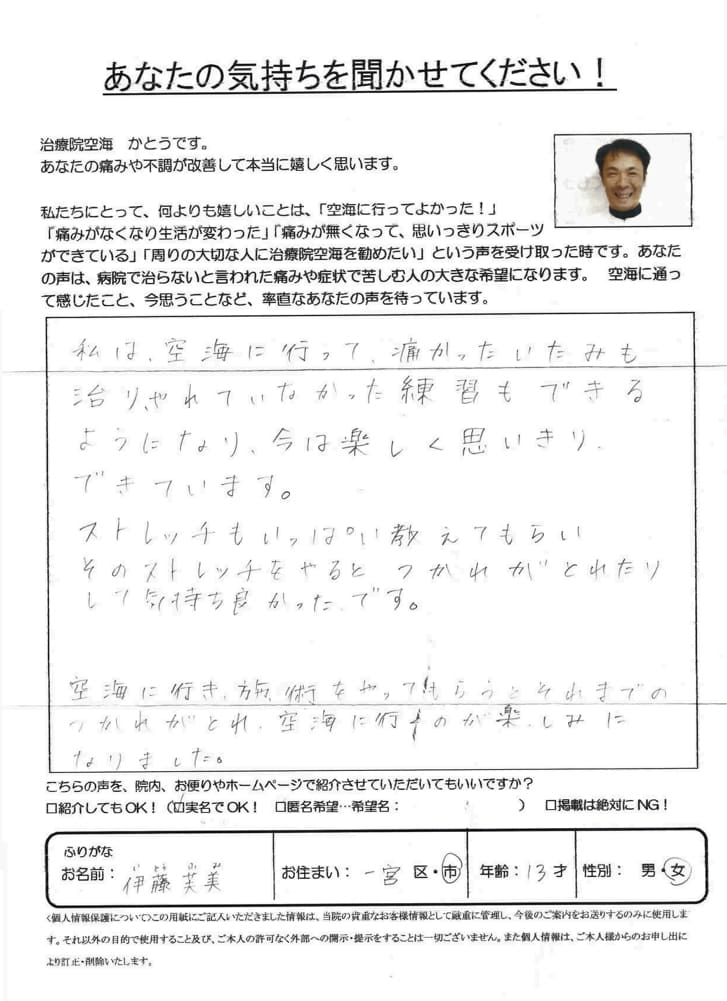 あなたの気持ちを聞かせてください！
治療院空海　かとうです。
あなたの痛みや不調が改善して本当に嬉しく思います。
私たちにとって、何よりも嬉しいことは、「空海に行ってよかった！」
「痛みがなくなり生活が変わった」「痛みが無くなって、思いっきりスポーツ
ができている」「周りの大切な人に治療院空海を勧めたい」という声を受け取った時です。あなた
の声は、病院で治らないと言われた痛みや症状で苦しむ人の大きな希望になります。　空海に通っ
て感じたこと、今思うことなど、率直なあなたの声を待っています。
私は、空海に行って、痛かったいたみも
治り、やれていなかった練習もできる
ようになり、今は楽しく思いきり、
できています。
ストレッチもいっぱい教えてもらい
そのストレッチをやるとつかれがとれたり
して気持ち良かったです。
空海に行き、施術をやってもらうとそれまでの
つかれがとれ、空海に行くのが楽しみに
なりました。
こちらの声を、院内、お便りやホームページで紹介させていただいてもいいですか？
□紹介してもOK！（☑実名でOK！　□匿名希望…希望名：　　　　　）　□掲載は絶対にNG！
ふりがな　いとう　ふみ
お名前：伊藤芙美　お住まい：一宮 区・市　年齢：13才　性別：　男・女
〈個人情報保護について〉この用紙にご記入いただきました情報は、当院の貴重なお客様情報として厳重に管理し、今後のご案内をお送りするのみに使用しま
す。それ以外の目的で使用すること及び、ご本人の許可なく外部への開示・提示をすることは一切ございません。また個人情報は、ご本人様からのお申し出に
より訂正・削除いたします。